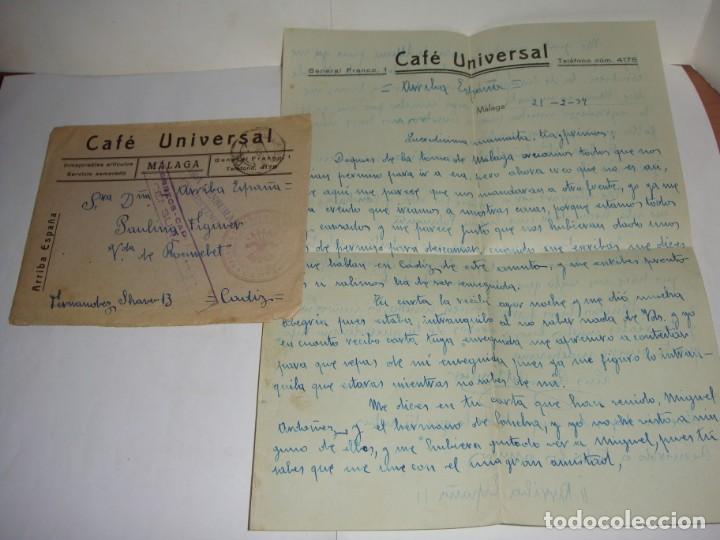 Café Universal
Inmejorables artículos
Servicio esmerado
MÁLAGA
General Franco 1
Teléfono, 4178
Arriba España
= Arriba España =
Sra Dña
Paulina Figuier
Vda de
Fernandez Shaw-13 = Cadiz =
Café Universal
General Franco, 1
Teléfono núm. 4178
= Arriba España =
Málaga 21-2-37
mamaita, tia, primos;
Dsques de la toma de Málaga creiamos todos que nos
permiso para ir a esa, pero ahora veo que no es asi,
aqui me parece que nos mandaran a otro frente, yo ya me
creido que iriamos a nuestras casas, porque estamos todos
cansados y me parece justo que nos hubieran dado unos
de permiso para descansar, cuando me escribas me dices
me hablan en Cadiz de este asunto, y me escribes pronto
si salimos ha de ser enseguida.
Tu carta la recibi ayer noche y me dió mucha
alegria pues estaba intranquilo al no saber nada de Vds. y yo
en cuanto recibo carta tuya enseguida me apresuro a contestar
para que sepas de mi enseguida pues ya me figuro lo intran-
quila que estaras mientras no sabes de mi.
Me dices en tu carta que han venido, Miguel
Ordoñez y el hermano de y yo no he visto, a nin
guno de ellos, y me hubiera gustado ver a Miguel, pues tú
sabes que me une con el una gran amistad,
todocoleccion
todocoleccion.net